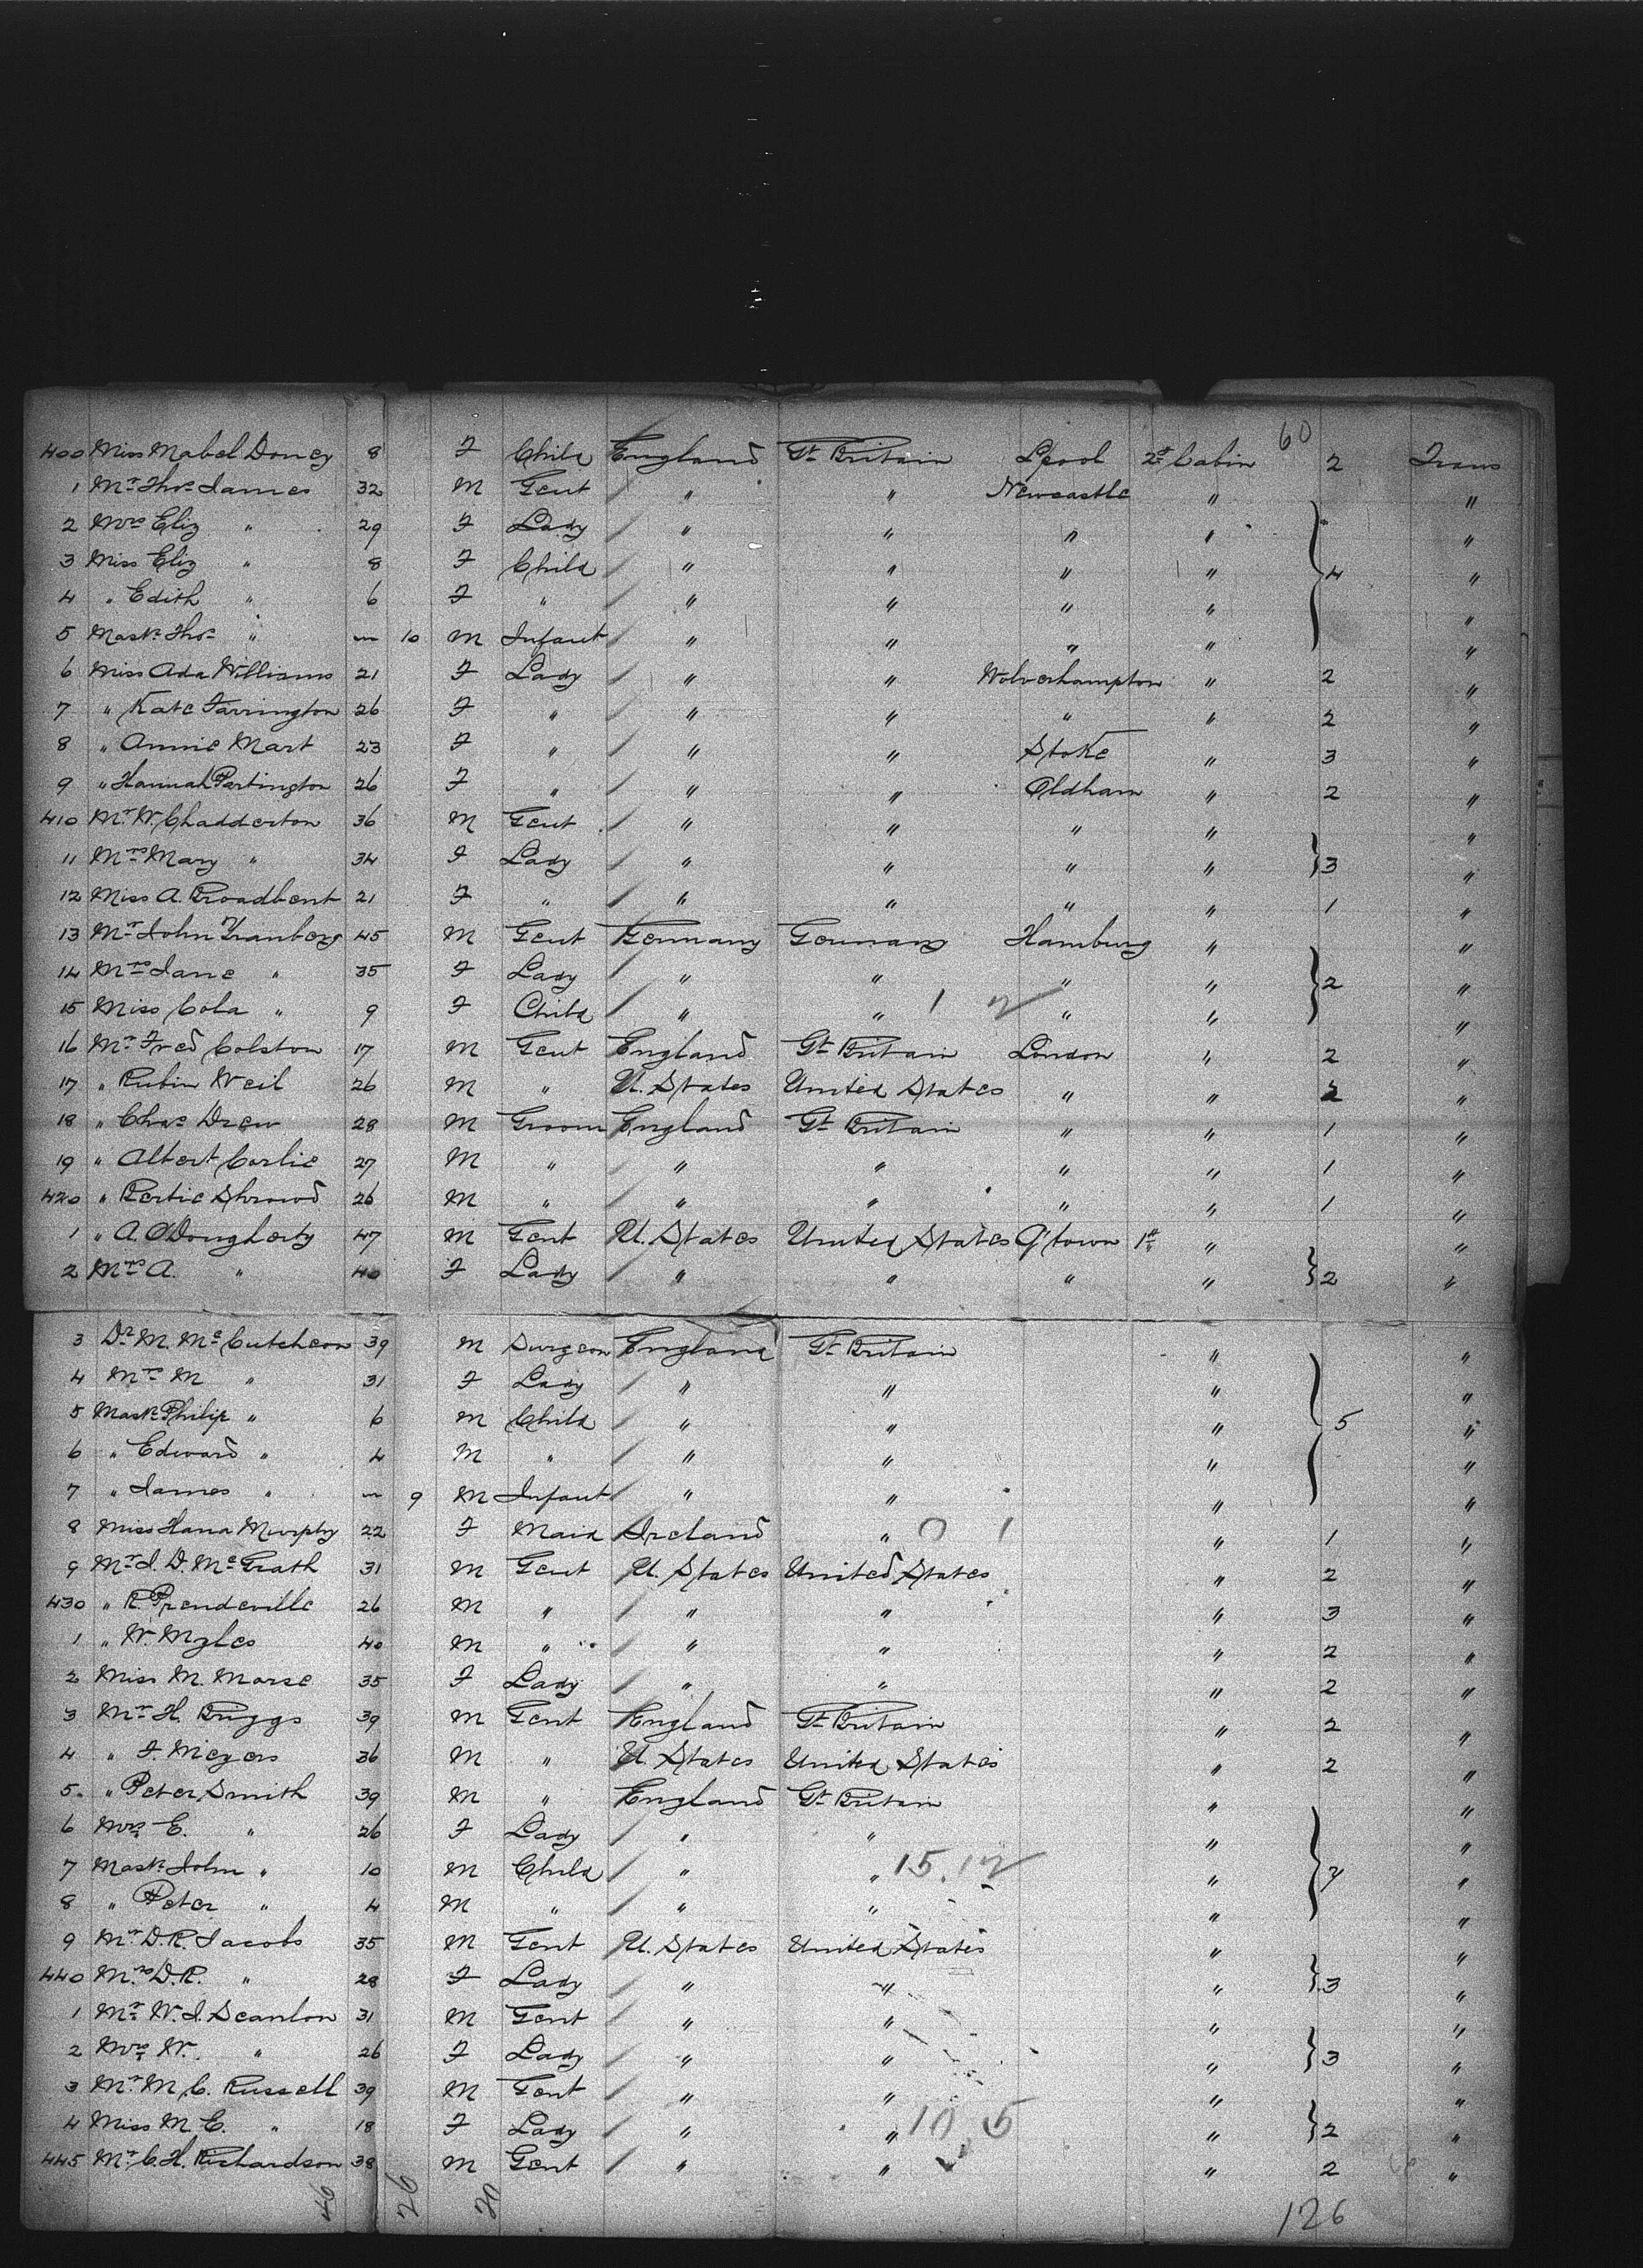 60
400 Miss Mabel Doney 8 F Child England Gt Britain Lpool 2d Cabin 2 Trans
1 Mr Thos James 32 M Gent " " Newcastle " "
2 Mrs Eliz " 29 F Lady " " " " "
3 Miss Eliz " 8 F Child " " " " 4 "
4 " Edith " 6 F " " " " " "
5 Mastr Thos " 10 M Infant " " " " "
6 Miss Ada Williams 21 F Lady " " Wolverhampton " 2 "
7 " Kate Farrington 26 F " " " " " 2 "
8 " Annie Mart 23 F " " " Stoke " 3 "
9 " Hannah Partington 26 F " " " Oldham " 2 "
410 Mr W. Chadderton 36 M Gent " " " " "
11 Mrs Mary " 34 F Lady " " " " 3 "
12 Miss A. Broadbent 21 F " " " " " 1 "
13 Mr John Kranberg 45 M Gent Germany Germany Hamburg " "
14 Mrs Jane " 35 F Lady " " " " 2 "
15 Miss Cola " 9 F Child " " 1 2 " " "
16 Mr Fred Colston 17 M Gent England Gt Britain London " 2 "
17 " Rubin Weil 26 M " U. States United States " " 2 "
18 " Chas Drew 28 M Groom England Gt Britain " " 1 "
19 " Albert Corlie 27 M " " " " " 1 "
420 " Bertie Shrowd 26 M " " " " " 1 "
1 " A. O'Dougherty 47 M Gent U. States United States Q'town 1st " "
2 Mrs A. " 40 F Lady " " " " 2 "
3 Dr M. McCutcheon 39 M Surgeon England Gt Britain " "
4 Mrs M " 31 F Lady " " " "
5 Mastr Philip " 6 M Child " " " 5 "
6 " Edward " 4 M " " " " "
7 " James " 9 M Infant " " " "
8 Miss Hana Murphy 22 F Maid Ireland " 0 1 " 1 "
9 Mr J. D. McGrath 31 M Gent U. States United States " 2 "
430 " R. Prendeville 26 M " " " " 3 "
1 " W. Myles 40 M " " " " 2 "
2 Miss M. Morse 35 F Lady " " " 2 "
3 Mr H. Briggs 39 M Gent England Gt Britain " 2 "
4 " F. Meyers 36 M " U. States United States " 2 "
5 " Peter Smith 39 M " England Gt Britain " "
6 Mrs E. " 26 F Lady " " " "
7 Mastr John " 10 M Child " " 15.12 " 7 "
8 " Peter " 4 M " " " " "
9 Mr D. R. Jacobs 35 M Gent U. States United States " "
440 Mrs D. R. " 28 F Lady " " " 3 "
1 Mr W. J. Scanlon 31 M Gent " " " "
2 Mrs W. " 26 F Lady " " " 3 "
3 Mr M. C. Russell 39 M Gent " " " "
4 Miss M. E. " 18 F Lady " " 10 5 " 2 "
445 Mr C. H. Richardson 38 M Gent " " " 2 "
46 26 20 126